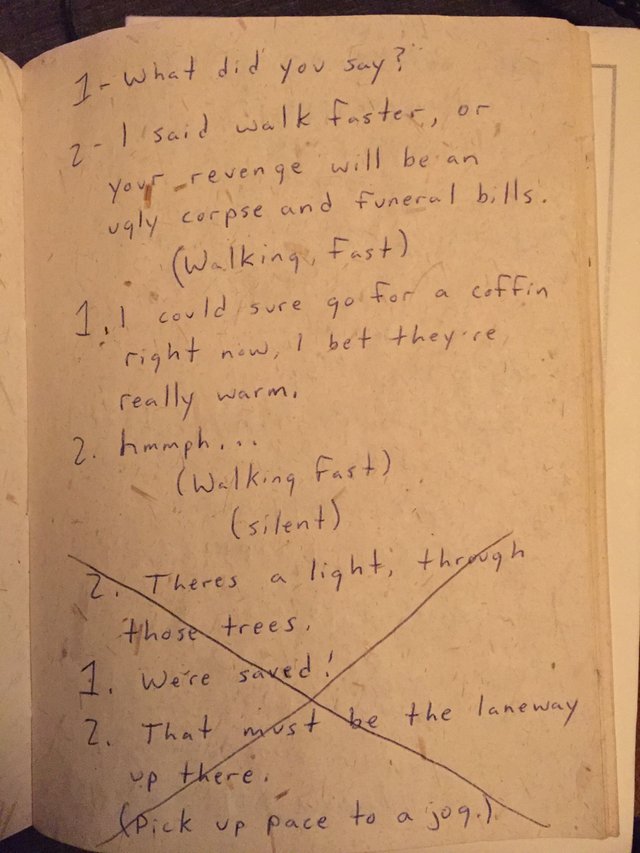 1- What did you say?
2- I said walk faster, or
your revenge will be an
ugly corpse and funeral bills.
(Walking, fast)
1. I could sure go for a coffin
right now, I bet they're
really warm.
2. hmmph...
(Walking fast)
(silent)
2. Theres a light, through
those trees.
1. We're saved!
2. That must be the laneway
up there.
(Pick up pace to a jog.)